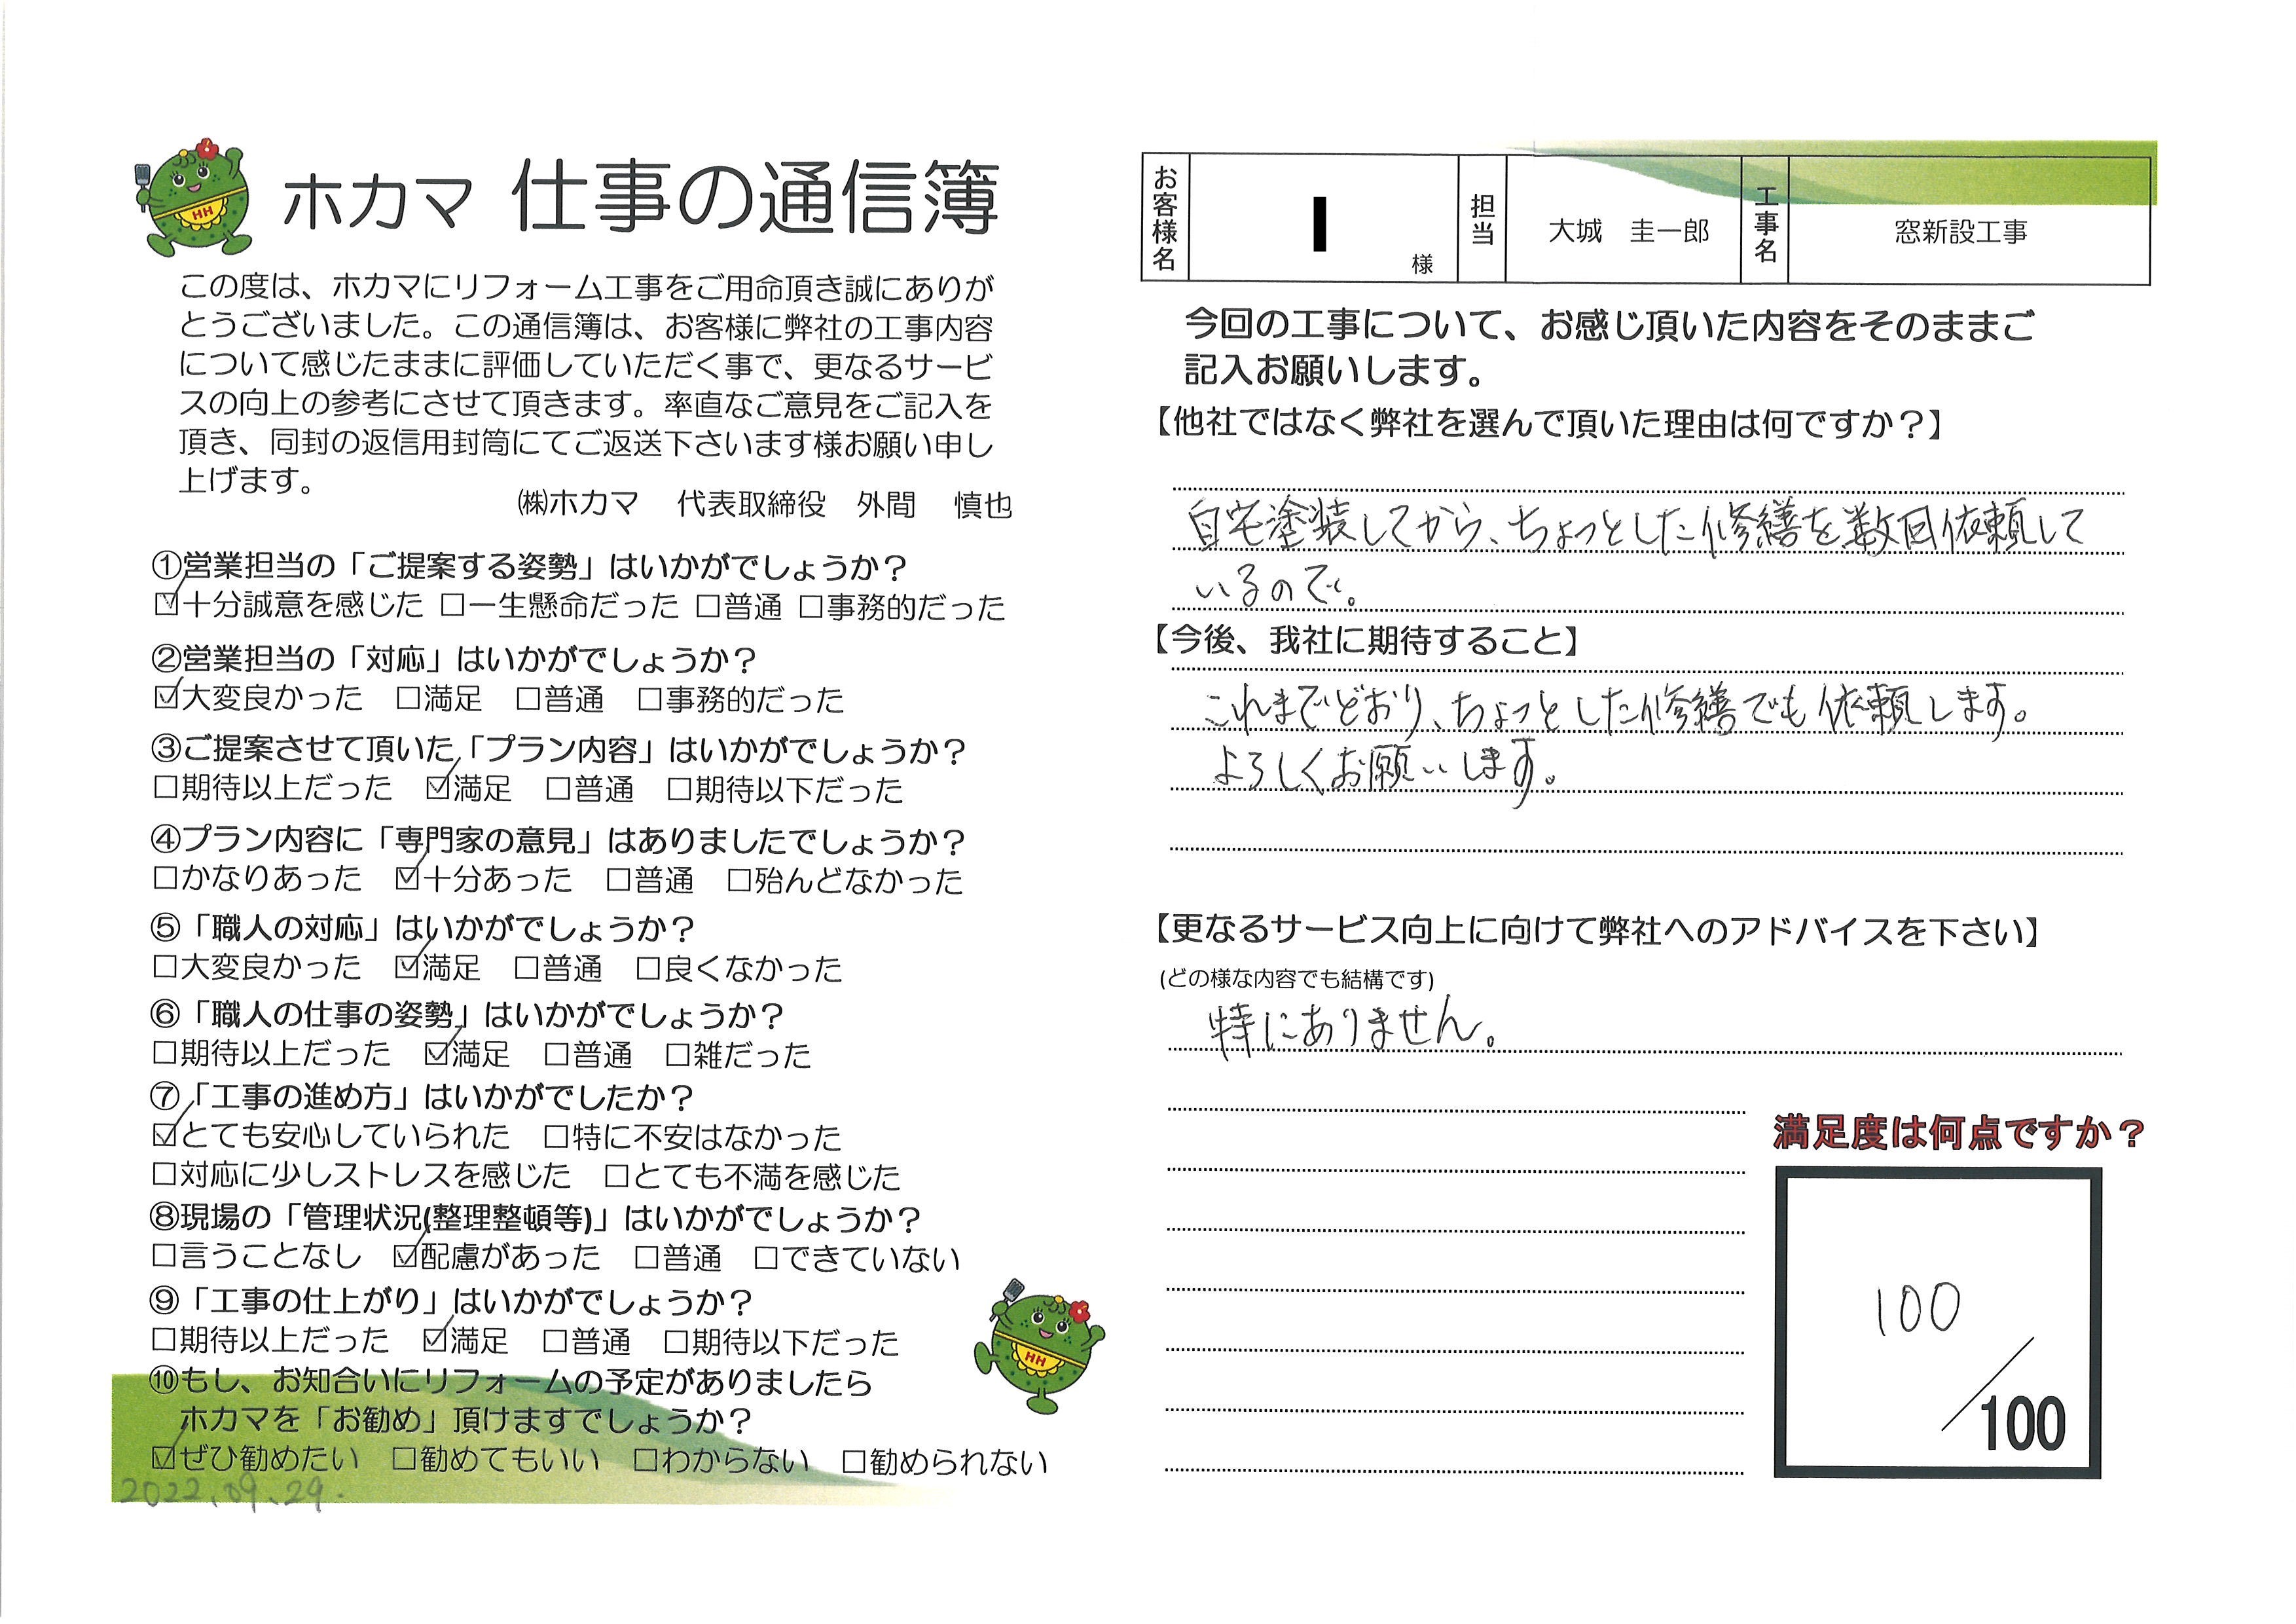 ホカマ 仕事の通信簿
この度は、ホカマにリフォーム工事をご用命頂き誠にありが
とうございました。この通信簿は、お客様に弊社の工事内容
について感じたままに評価していただく事で、更なるサービ
スの向上の参考にさせて頂きます。率直なご意見をご記入を
頂き、同封の返信用封筒にてご返送下さいます様お願い申し
上げます。
㈱ホカマ 代表取締役 外間 慎也
①営業担当の「ご提案する姿勢」はいかがでしょうか？
☑十分誠意を感じた □一生懸命だった □普通 □事務的だった
②営業担当の「対応」はいかがでしょうか？
☑大変良かった □満足 □普通 □事務的だった
③ご提案させて頂いた「プラン内容」はいかがでしょうか？
□期待以上だった ☑満足 □普通 □期待以下だった
④プラン内容に「専門家の意見」はありましたでしょうか？
□かなりあった ☑十分あった □普通 □殆んどなかった
⑤「職人の対応」はいかがでしょうか？
□大変良かった ☑満足 □普通 □良くなかった
⑥「職人の仕事の姿勢」はいかがでしょうか？
□期待以上だった ☑満足 □普通 □雑だった
⑦「工事の進め方」はいかがでしたか？
☑とても安心していられた □特に不安はなかった
□対応に少しストレスを感じた □とても不満を感じた
⑧現場の「管理状況(整理整頓等)」はいかがでしょうか？
□言うことなし ☑配慮があった □普通 □できていない
⑨「工事の仕上がり」はいかがでしょうか？
□期待以上だった ☑満足 □普通 □期待以下だった
⑩もし、お知合いにリフォームの予定がありましたら
ホカマを「お勧め」頂けますでしょうか？
☑ぜひ勧めたい □勧めてもいい □わからない □勧められない
2022.09.29.
HH
HH
お客様名 I 様 担当 大城 圭一郎 工事名 窓新設工事
今回の工事について、お感じ頂いた内容をそのままご
記入お願いします。
【他社ではなく弊社を選んで頂いた理由は何ですか？】
自宅塗装してから、ちょっとした修繕を数回依頼して
いるので。
【今後、我社に期待すること】
これまでどおり、ちょっとした修繕でも依頼します。
よろしくお願いします。
【更なるサービス向上に向けて弊社へのアドバイスを下さい】
(どの様な内容でも結構です)
特にありません。
満足度は何点ですか？
100
／100